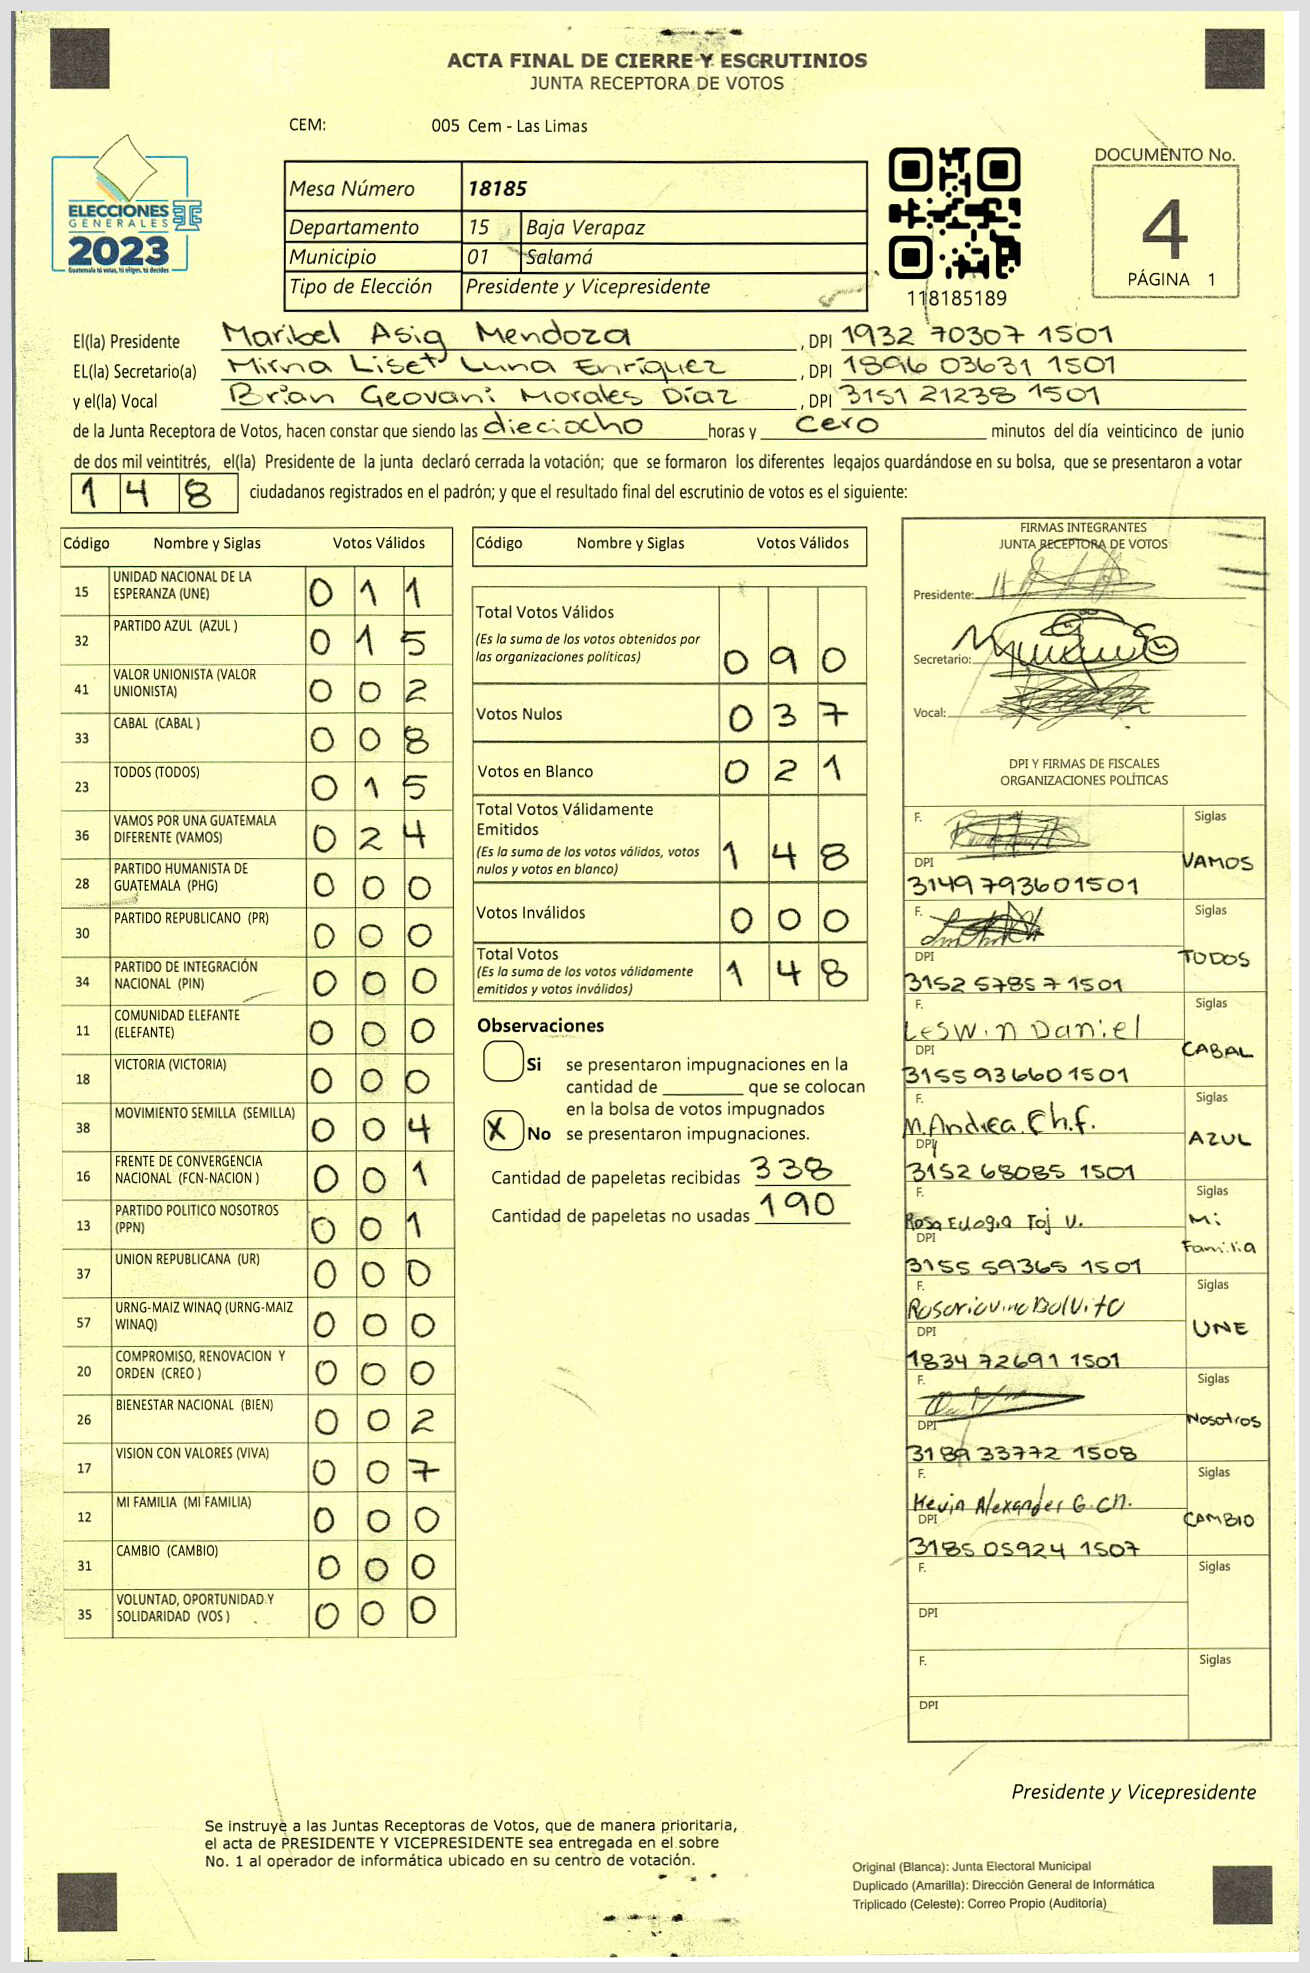 ACTA FINAL DE CIERRE Y ESCRUTINIOS
JUNTA RECEPTORA DE VOTOS
CEM: 005 Cem - Las Limas
ELECCIONES
GENERALES
2023
Guatemala tú votas, tú eliges, tú decides
Mesa Número 18185
Departamento 15 Baja Verapaz
Municipio 01 Salamá
Tipo de Elección Presidente y Vicepresidente
118185189
DOCUMENTO No.
4
PÁGINA 1
El(la) Presidente Maribel Asig Mendoza, DPI 1932 70307 1501
EL(la) Secretario(a) Mirna Liset Luna Enríquez, DPI 1896 03631 1501
y el(la) Vocal Brian Geovani Morales Díaz, DPI 3151 21238 1501
de la Junta Receptora de Votos, hacen constar que siendo las dieciocho horas y cero minutos del día veinticinco de junio
de dos mil veintitrés, el(la) Presidente de la junta declaró cerrada la votación; que se formaron los diferentes legajos guardándose en su bolsa, que se presentaron a votar
148 ciudadanos registrados en el padrón; y que el resultado final del escrutinio de votos es el siguiente:
Código Nombre y Siglas Votos Válidos
15 UNIDAD NACIONAL DE LA ESPERANZA (UNE) 011
32 PARTIDO AZUL (AZUL ) 015
41 VALOR UNIONISTA (VALOR UNIONISTA) 002
33 CABAL (CABAL ) 008
23 TODOS (TODOS) 015
36 VAMOS POR UNA GUATEMALA DIFERENTE (VAMOS) 024
28 PARTIDO HUMANISTA DE GUATEMALA (PHG) 000
30 PARTIDO REPUBLICANO (PR) 000
34 PARTIDO DE INTEGRACIÓN NACIONAL (PIN) 000
11 COMUNIDAD ELEFANTE (ELEFANTE) 000
18 VICTORIA (VICTORIA) 000
38 MOVIMIENTO SEMILLA (SEMILLA) 004
16 FRENTE DE CONVERGENCIA NACIONAL (FCN-NACION ) 001
13 PARTIDO POLITICO NOSOTROS (PPN) 001
37 UNION REPUBLICANA (UR) 000
57 URNG-MAIZ WINAQ (URNG-MAIZ WINAQ) 000
20 COMPROMISO, RENOVACION Y ORDEN (CREO ) 000
26 BIENESTAR NACIONAL (BIEN) 002
17 VISION CON VALORES (VIVA) 007
12 MI FAMILIA (MI FAMILIA) 000
31 CAMBIO (CAMBIO) 000
35 VOLUNTAD, OPORTUNIDAD Y SOLIDARIDAD (VOS ) 000
Código Nombre y Siglas Votos Válidos
Total Votos Válidos
(Es la suma de los votos obtenidos por
las organizaciones políticas) 090
Votos Nulos 037
Votos en Blanco 021
Total Votos Válidamente
Emitidos
(Es la suma de los votos válidos, votos
nulos y votos en blanco) 148
Votos Inválidos 000
Total Votos
(Es la suma de los votos válidamente
emitidos y votos inválidos) 148
Observaciones
Si se presentaron impugnaciones en la
cantidad de ________ que se colocan
en la bolsa de votos impugnados
X No se presentaron impugnaciones.
Cantidad de papeletas recibidas 338
Cantidad de papeletas no usadas 190
FIRMAS INTEGRANTES
JUNTA RECEPTORA DE VOTOS
Presidente:
Secretario:
Vocal:
DPI Y FIRMAS DE FISCALES
ORGANIZACIONES POLÍTICAS
F. Siglas
DPI VAMOS
3149793601501
F. Siglas
DPI TODOS
3152 57857 1501
F. Leswin Daniel Siglas
DPI CABAL
3155936601501
F. M. Andrea. Ch.f. Siglas
DPI AZUL
3152 68085 1501
F. Rosa Eulogia Toj V. Siglas
DPI Mi Familia
3155 59365 1501
F. Siglas
DPI UNE
1834 72691 1501
F. Siglas
DPI Nosotros
3189 33772 1508
F. Kevin Alexander G. Ch. Siglas
DPI CAMBIO
3185 05924 1507
F. Siglas
DPI
F. Siglas
DPI
Presidente y Vicepresidente
Se instruye a las Juntas Receptoras de Votos, que de manera prioritaria,
el acta de PRESIDENTE Y VICEPRESIDENTE sea entregada en el sobre
No. 1 al operador de informática ubicado en su centro de votación.
Original (Blanca): Junta Electoral Municipal
Duplicado (Amarilla): Dirección General de Informática
Triplicado (Celeste): Correo Propio (Auditoria)